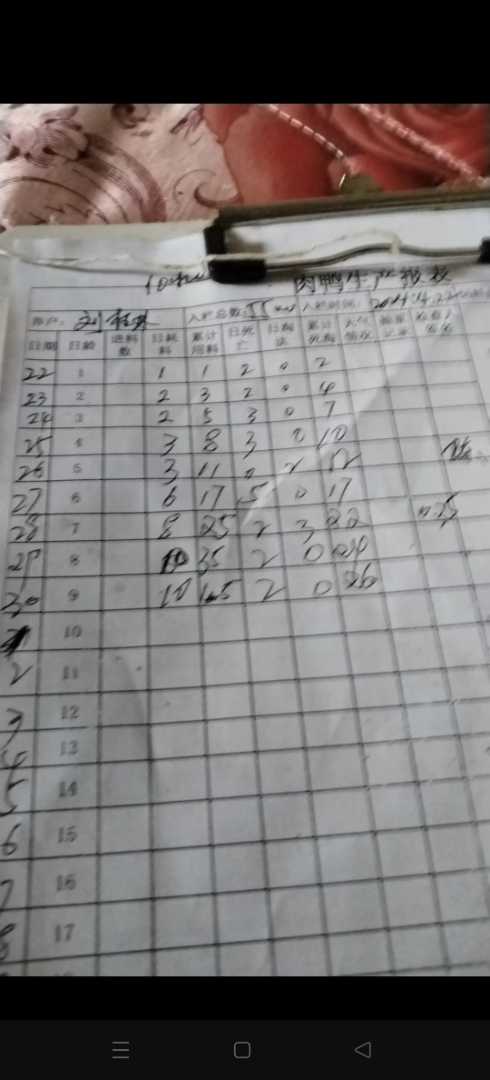 肉鸭生产报表
刘 入栏总数: 入栏时间:
日期 日龄 进料数 日耗料 累计用料 日死亡 日淘汰 累计死淘
22 1 1 1 2 0 2
23 2 2 3 2 0 4
24 3 2 5 3 0 7
25 4 3 8 3 0 10
26 5 3 11 0 2 12
27 6 6 17 5 0 17
28 7 8 25 2 3 22
29 8 10 35 2 0 24
30 9 10 45 2 0 26
10
2 11
3 12
4 13
5 14
6 15
7 16
8 17